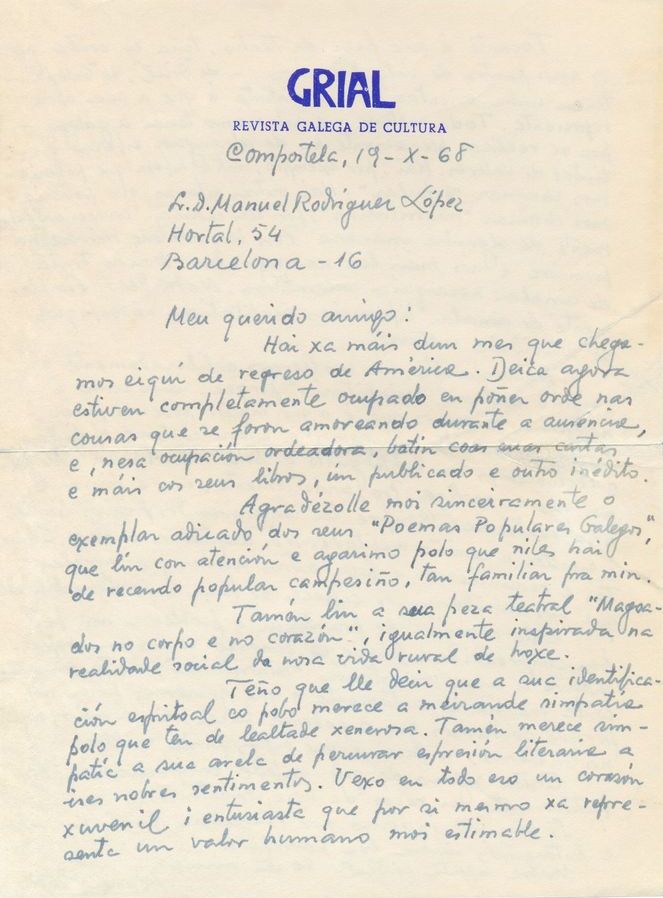 GRIAL
REVISTA GALEGA DE CULTURA
Compostela, 19-X-68
Sr. D. Manuel Rodríguez López
Hortal, 54
Barcelona - 16
Meu querido amigo:
Hai xa máis dun mes que chega-
mos eiquí de regreso de América. Deica agora
estiven completamente ocupado en póñer orde nas
cousas que se foron amoreando durante a ausencia,
e, nesa ocupación ordeadora, batín coas suas cartas
e máis cos seus libros, ún publicado e outro inédito.
Agradézolle moi sinceiramente o
exemplar adicado dos seus "Poemas Populares Galegos",
que lin con atención e agarimo polo que niles hai
de recendo popular campesiño, tan familiar pra min.
Tamén lin a sua peza teatral "Magoa-
dos no corpo e no corazón", igualmente inspirada na
realidade social da nosa vida rural de hoxe.
Teño que lle decir que a sua identifica-
ción espritoal co pobo merece a meirande simpatía
polo que ten de lealtade xenerosa. Tamén merece sim-
patía a sua arela de percurar espresión literaria a
ises nobres sentimentos. Vexo en todo eso un corazón
xuvenil i entusiasta que por si mesmo xa repre-
senta un valor humano moi estimable.